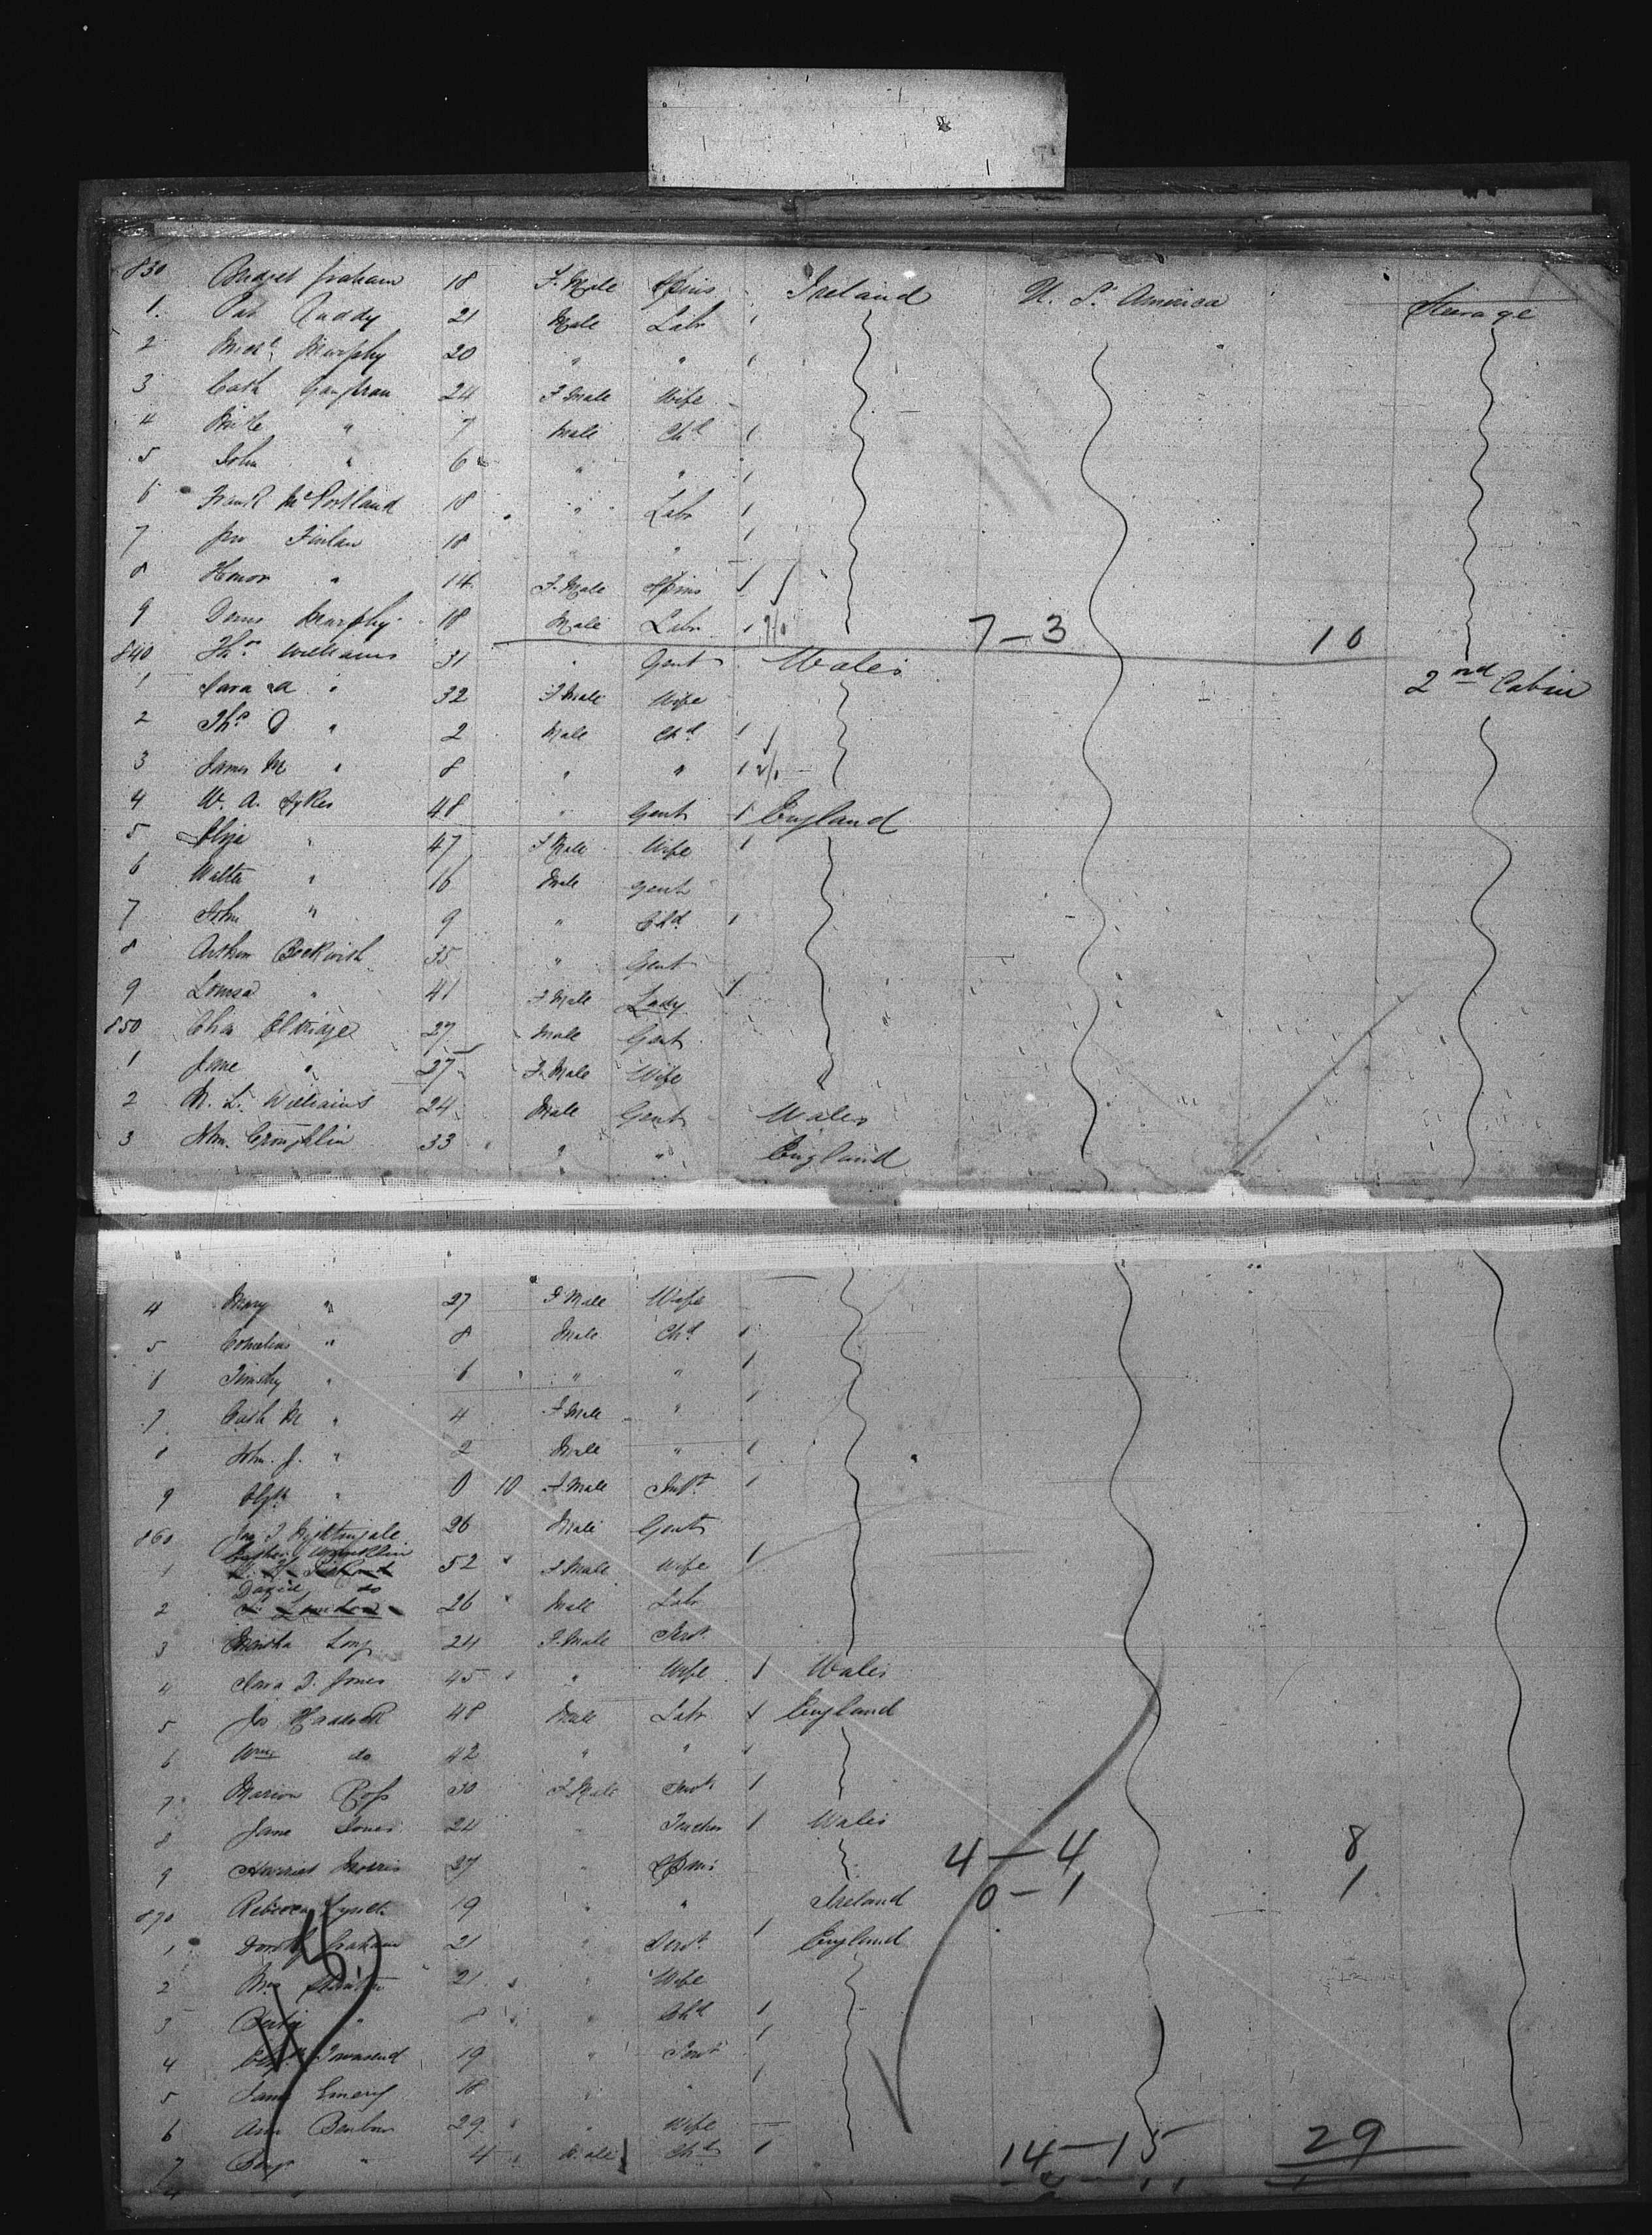 830 Bridget Graham 18 F. Male Spins Ireland U. S. America Steerage
1. Pat Ruddy 21 Male Labr 1
2 Michl Murphy 20 " " 1
3 Cath Gaughran 24 F Male Wife
4 Mike " 7 Male Chd 1
5 John " 6 " " 1
6 Frank McPortland 18 " Labr 1
7 Jno Finlan 18 " " 1
8 Honor " 14 F. Male Spins 1
9 Denis Murphy 18 Male Labr 1 7-3 10
840 Thos Williams 31 " Gent Wales 2nd Cabin
1 Sara A " 32 F Male Wife
2 Thos D " 2 Male Chd 1
3 James M " 8 " " 1
4 W. A. Sykes 48 " Gent 1 England
5 Eliza " 47 F Male Wife 1
6 Walter " 16 Male Gent
7 John " 9 " Chd 1
8 Arthur Beckwith 35 " Gent
9 Louisa " 41 F Male Lady 1
850 Chas Eldridge 27 Male Gent
1 Jane " 27 F. Male Wife
2 M. L. Williams 24 Male Gent Wales
3 John Coughlin 33 " " England
4 Mary " 27 F Male Wife
5 Cornelius " 8 Male Chd 1
6 Timothy " 6 " " 1
7 Cath M " 4 F Male " 1
8 John. J. " 2 Male " 1
9 Elizth " 0 10 F Male Inft 1
860 Jno J Nightingale 26 Male Gent
1 52 F Male Wife 1
2 David do 26 Male Labr
3 Martha Long 24 F. Male Servt
4 D. Jones 45 " Wife 1 Wales
5 Jos Haddock 48 Male Labr 1 England
6 Wm do 42 " " 1
7 Marion Ross 30 F Male Servt 1
8 Jane Jones 24 Teacher 1 Wales
9 Harriet Morris 27 " Spins 4-4 8
870 Rebecca Lynch 19 " " Ireland 0-1 1
1 Graham 21 " Servt 1 England
2 Mrs 21 " Wife
3 " 8 " Chd 1
4 Townsend 19 " Servt 1
5 Jane Emery 18 " " 1
6 Ann Benbow 29 " Wife
7 Benj " 4 Male Chd 1 14-15 29